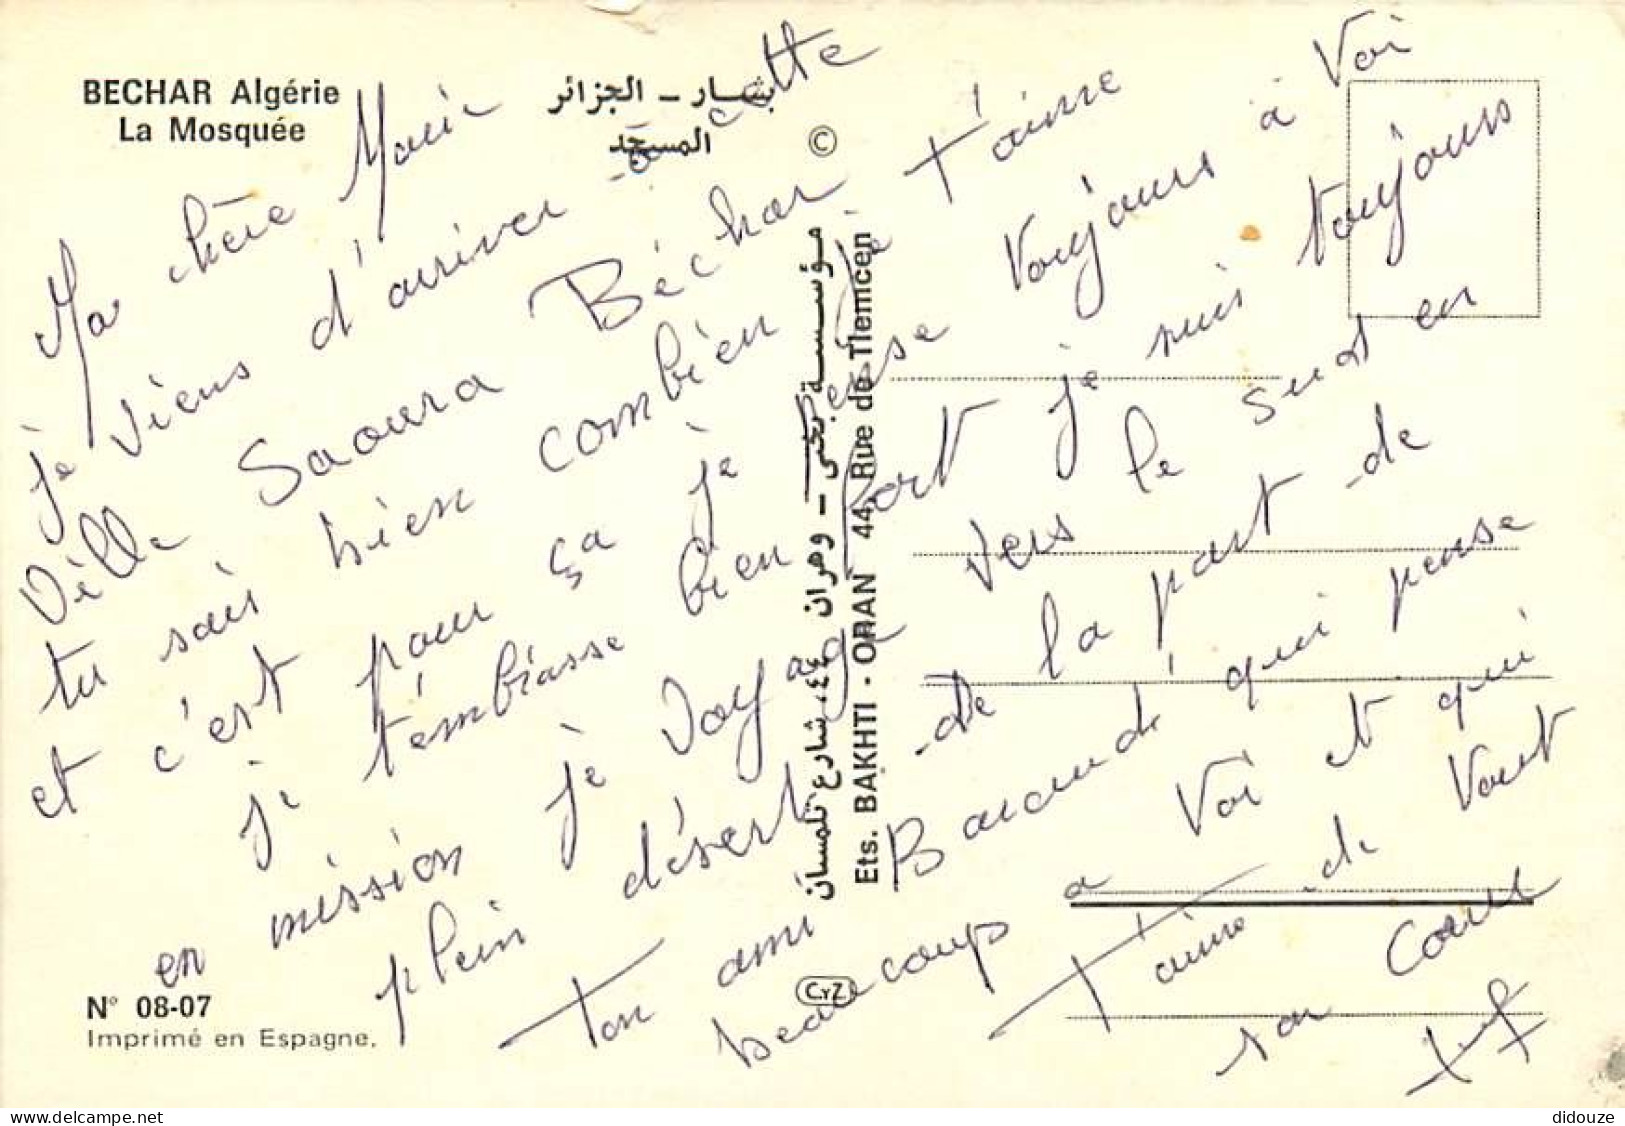 BECHAR Algérie
La Mosquée
بشار - الجزائر
المسجد
©
Ma chère Marie
je viens d'arriver à cette
Ville Saoura Béchar
tu sais bien combien je t'aime
et c'est pour ça je pense toujours à Voi
je t'émbrasse bien fort je suis toujours
en mission je voyage vers le sud en
plein désert de la part de
Ton ami qui pense
beaucoup a Voi et qui
T'aime de tout
son Coeur
مؤسسة بختي - وهران ٤٤، شارع تلمسان
Ets. BAKHTI - ORAN 44, Rue de Tlemcen
CYZ
N° 08-07
Imprimé en Espagne.
delcampe.net
didouze